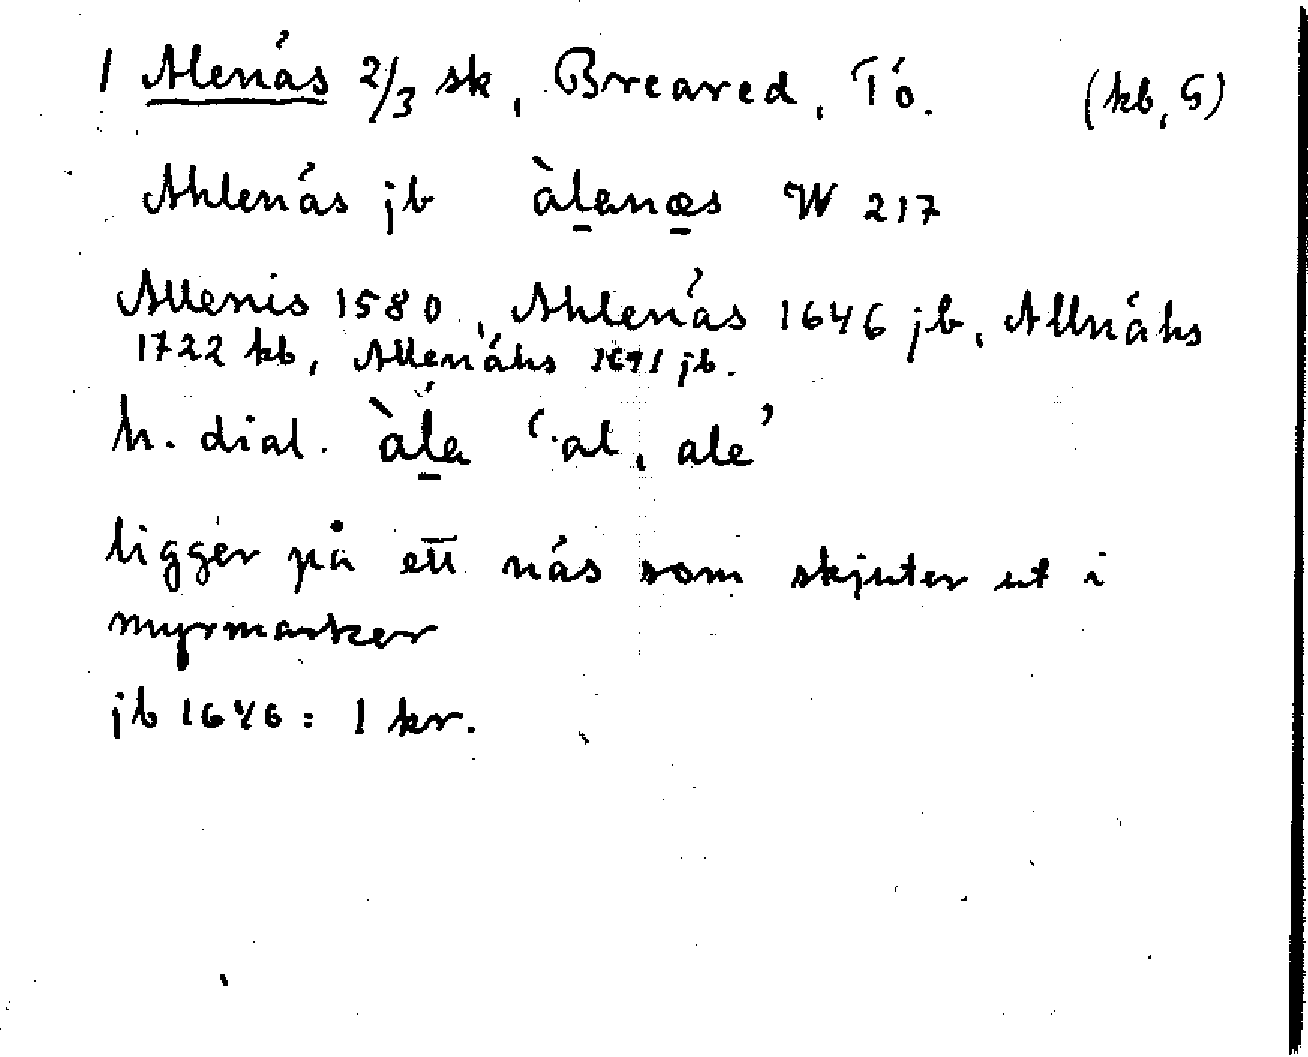 1 Alenäs 2/3 sk, Breared, Tö. (kb, G)
Ahlenäs jb àlanæs W 217
Allenis 1580, Ahlenäs 1646 jb, Allnähs
1722 kb, Allenähs 1691 jb.
h. dial. àla 'al, ale'
ligger på ett näs som skjuter ut i
myrmarker
jb 1646: 1 kr.